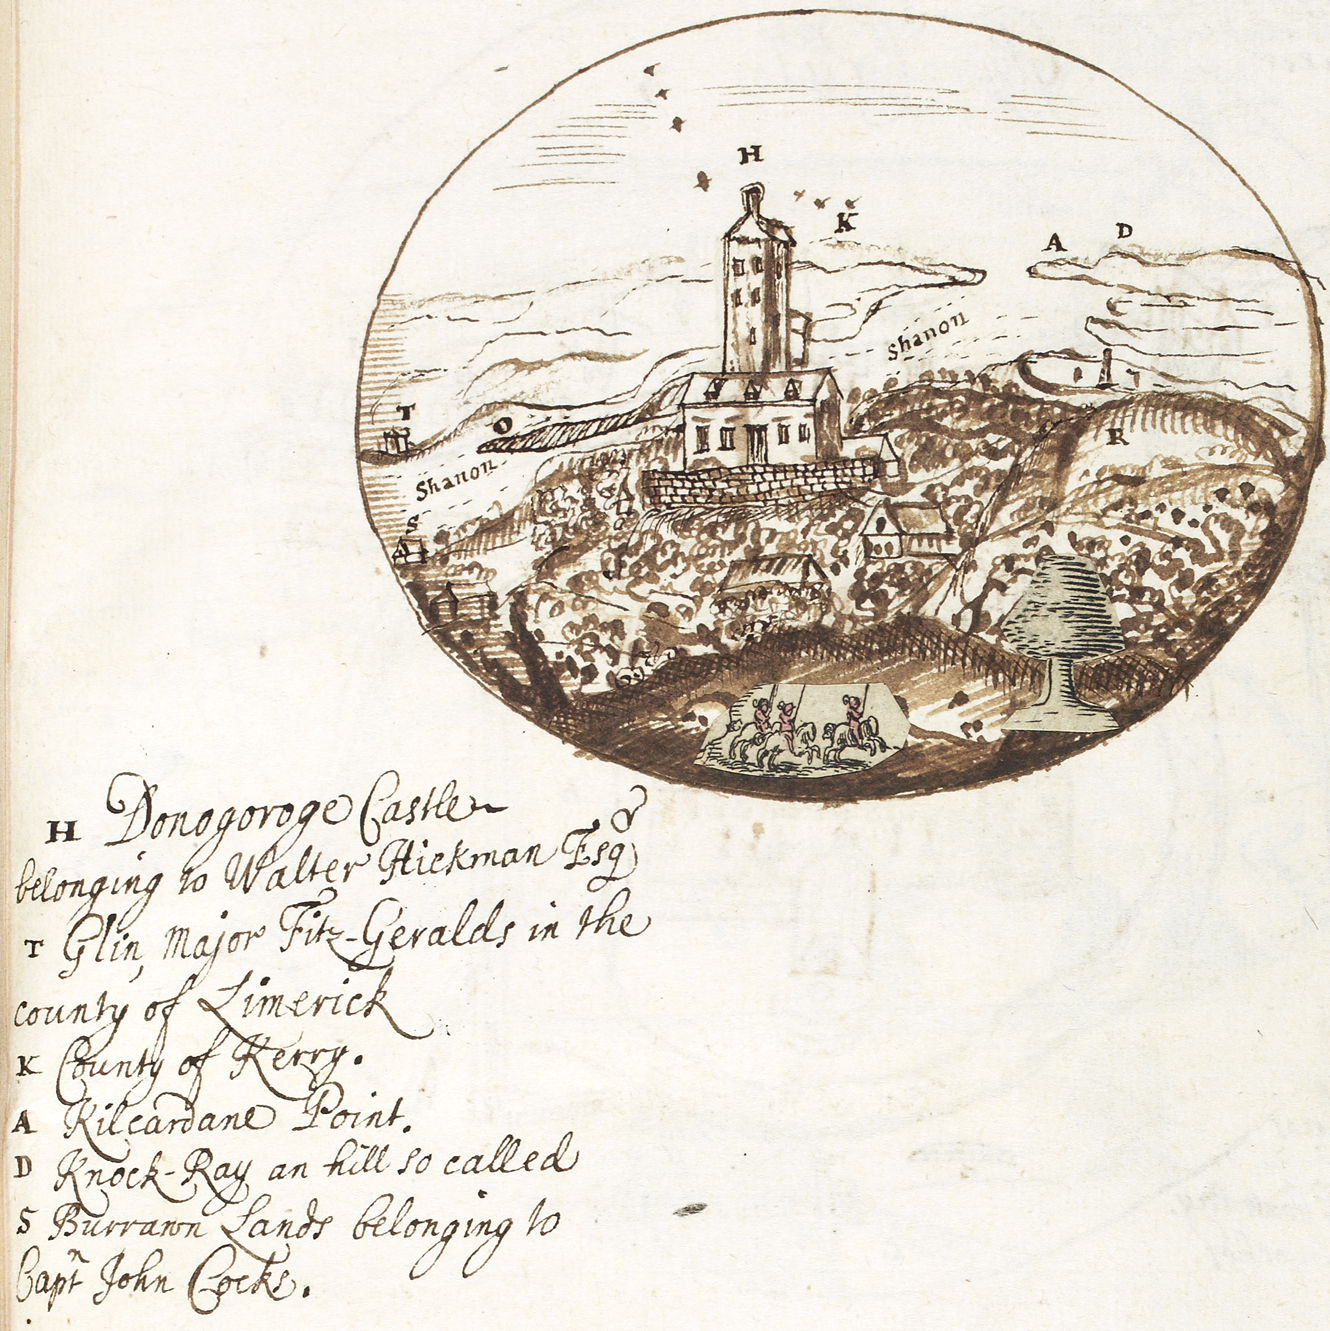 H
K
A D
Shanon
T
O
R
Shanon
S
H Donogoroge Castle
belonging to Walter Hickman Esqr
T Glin, Major Fitz-Geralds in the
county of Limerick
K County of Kerry.
A Kilcardane Point.
D Knock-Ray an hill so called
S Burrawn Lands belonging to
Captn John Cocks.